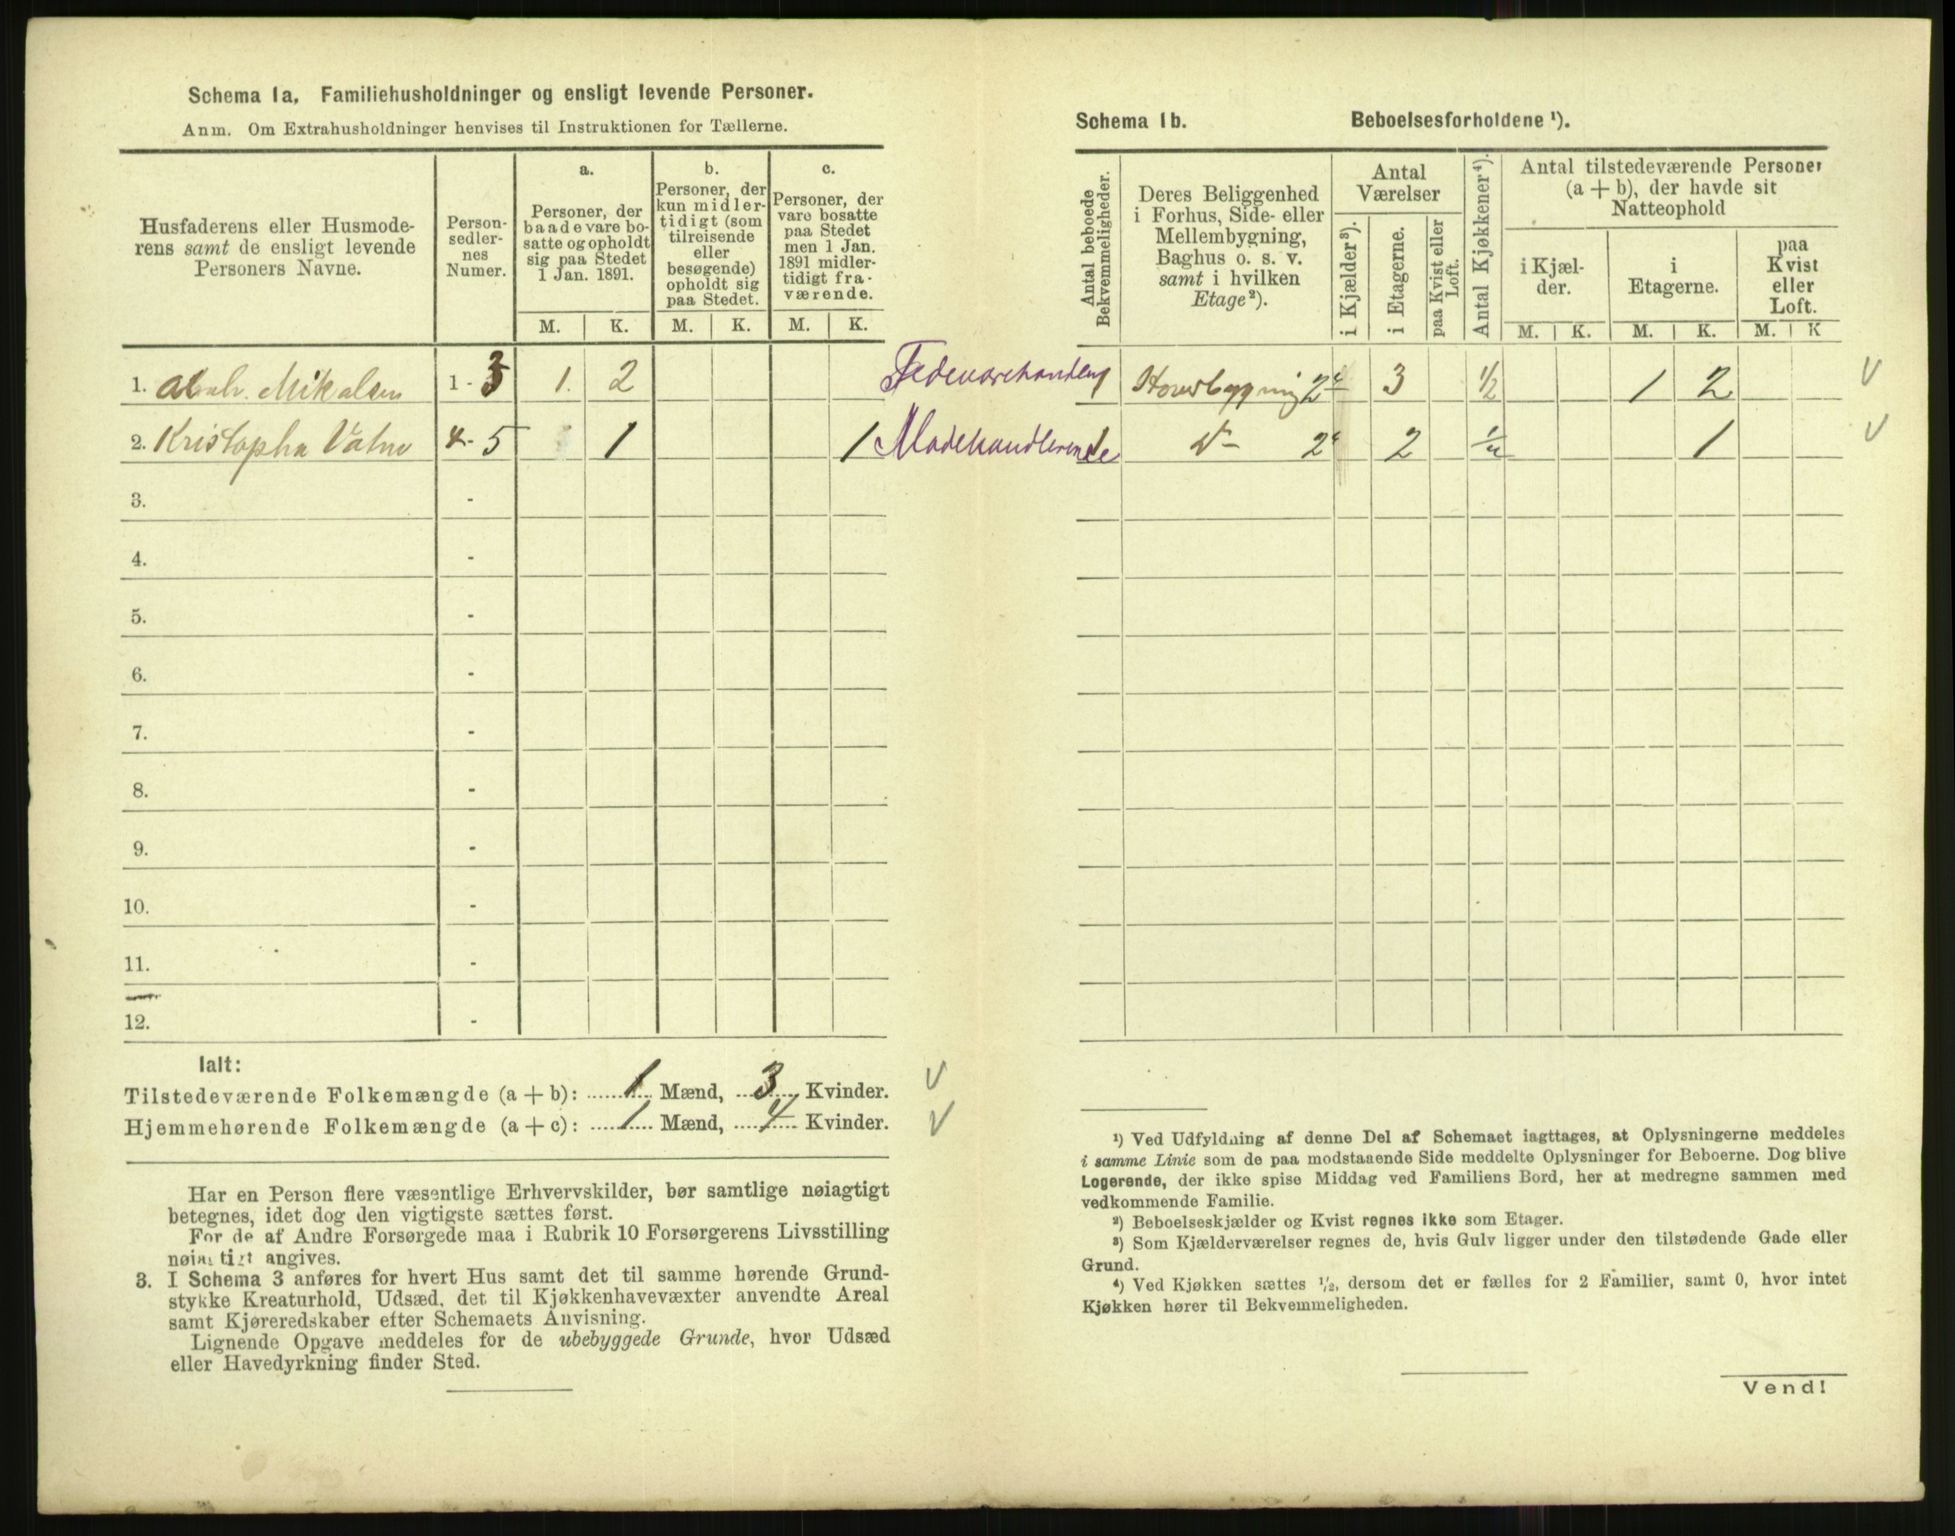 Schema 1a. Familiehusholdninger og ensligt levende Personer.
Anm. Om Extrahusholdninger henvises til Instruktionen for Tællerne.
Husfaderens eller Husmoderens samt de ensligt levende Personers Navne.
Personsedlernes Numer.
a.
Personer, der baade vare bosatte og opholdt sig paa Stedet 1 Jan. 1891.
b.
Personer, der kun midlertidigt (som tilreisende eller besøgende) opholdt sig paa Stedet.
c.
Personer, der vare bosatte paa Stedet men 1 Jan. 1891 midlertidigt fraværende.
M. K. M. K. M. K.
1. Mikalsen 1 - 3 1. 2
2. Kristopha Vatne 4 - 5 1 1
3. -
4. -
5. -
6. -
7. -
8. -
9. -
10. -
11. -
12. -
Ialt:
Tilstedeværende Folkemængde (a + b): 1 Mænd, 3 Kvinder. V
Hjemmehørende Folkemængde (a + c): 1 Mænd, 4 Kvinder. V
Har en Person flere væsentlige Erhvervskilder, bør samtlige nøiagtigt
betegnes, idet dog den vigtigste sættes først.
For de af Andre Forsørgede maa i Rubrik 10 Forsørgerens Livsstilling
nøiagtigt angives.
3. I Schema 3 anføres for hvert Hus samt det til samme hørende Grund-
stykke Kreaturhold, Udsæd, det til Kjøkkenhavevæxter anvendte Areal
samt Kjøreredskaber efter Schemaets Anvisning.
Lignende Opgave meddeles for de ubebyggede Grunde, hvor Udsæd
eller Havedyrkning finder Sted.
Schema 1b. Beboelsesforholdene ¹).
Antal beboede Bekvemmeligheder.
Deres Beliggenhed i Forhus, Side- eller Mellembygning, Baghus o. s. v. samt i hvilken Etage ²).
Antal Værelser
i Kjælder ³).
i Etagerne.
paa Kvist eller Loft.
Antal Kjøkkener ⁴).
Antal tilstedeværende Personer (a + b), der havde sit Natteophold
i Kjælder.
i Etagerne.
paa Kvist eller Loft.
M. K. M. K. M. K
Fedevarehandlen 1 Hovedbygning 2 3 1/2 1 2 V
Modehandlerinde 1 2 2 1/2 1 V
¹) Ved Udfyldning af denne Del af Schemaet iagttages, at Oplysningerne meddeles
i samme Linie som de paa modstaaende Side meddelte Oplysninger for Beboerne. Dog blive
Logerende, der ikke spise Middag ved Familiens Bord, her at medregne sammen med
vedkommende Familie.
²) Beboelseskjælder og Kvist regnes ikke som Etager.
³) Som Kjælderværelser regnes de, hvis Gulv ligger under den tilstødende Gade eller
Grund.
⁴) Ved Kjøkken sættes ½, dersom det er fælles for 2 Familier, samt 0, hvor intet
Kjøkken hører til Bekvemmeligheden.
Vend!